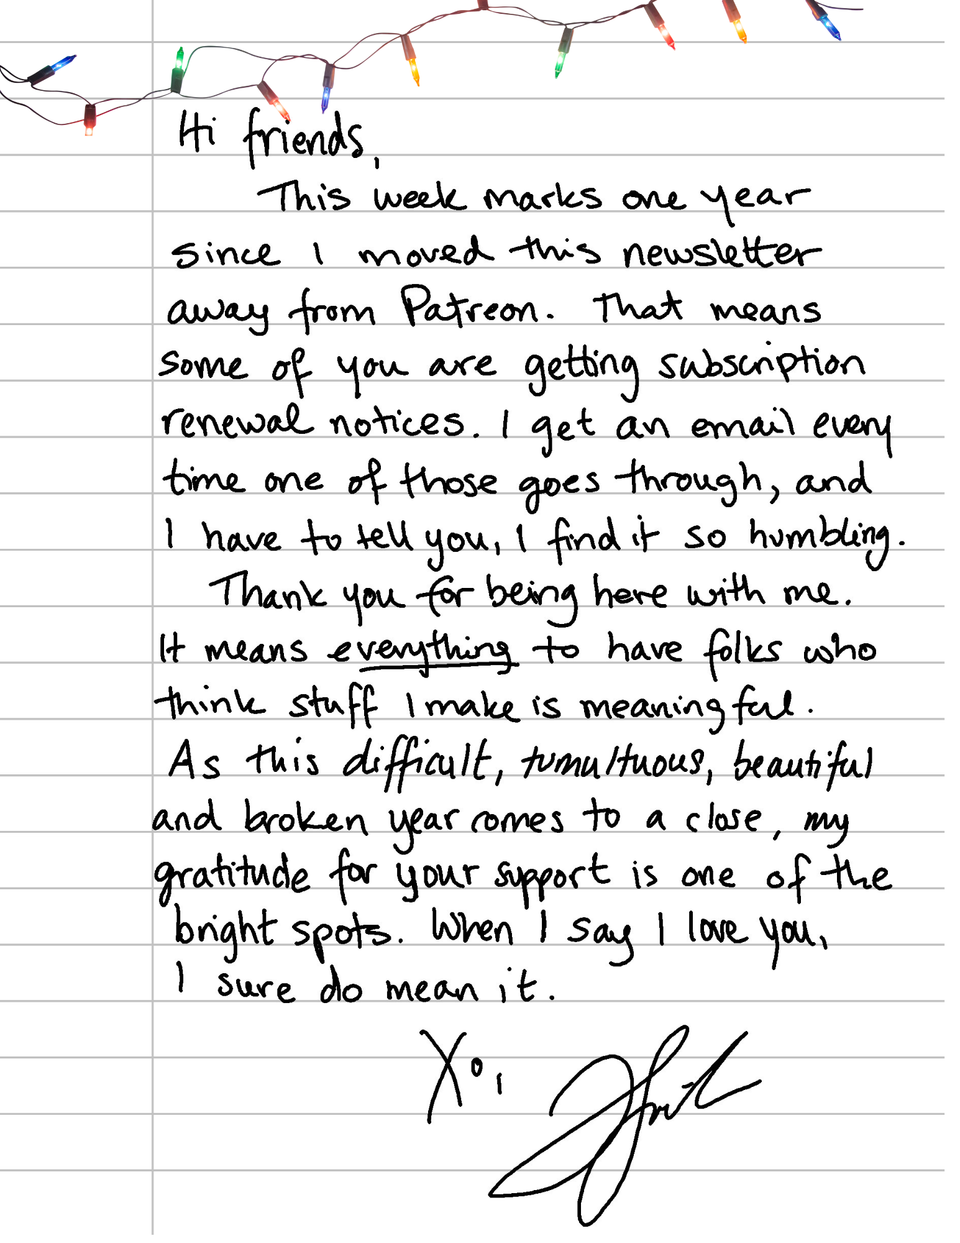 Hi friends,
This week marks one year
since I moved this newsletter
away from Patreon. That means
some of you are getting subscription
renewal notices. I get an email every
time one of those goes through, and
I have to tell you, I find it so humbling.
Thank you for being here with me.
It means everything to have folks who
think stuff I make is meaningful.
As this difficult, tumultuous, beautiful
and broken year comes to a close, my
gratitude for your support is one of the
bright spots. When I say I love you,
I sure do mean it.
Xo,